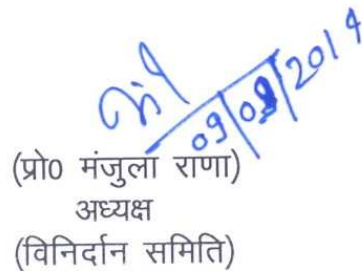 09/08/2014
(प्रो0 मंजुला राणा)
अध्यक्ष
(विनिर्दान समिति)